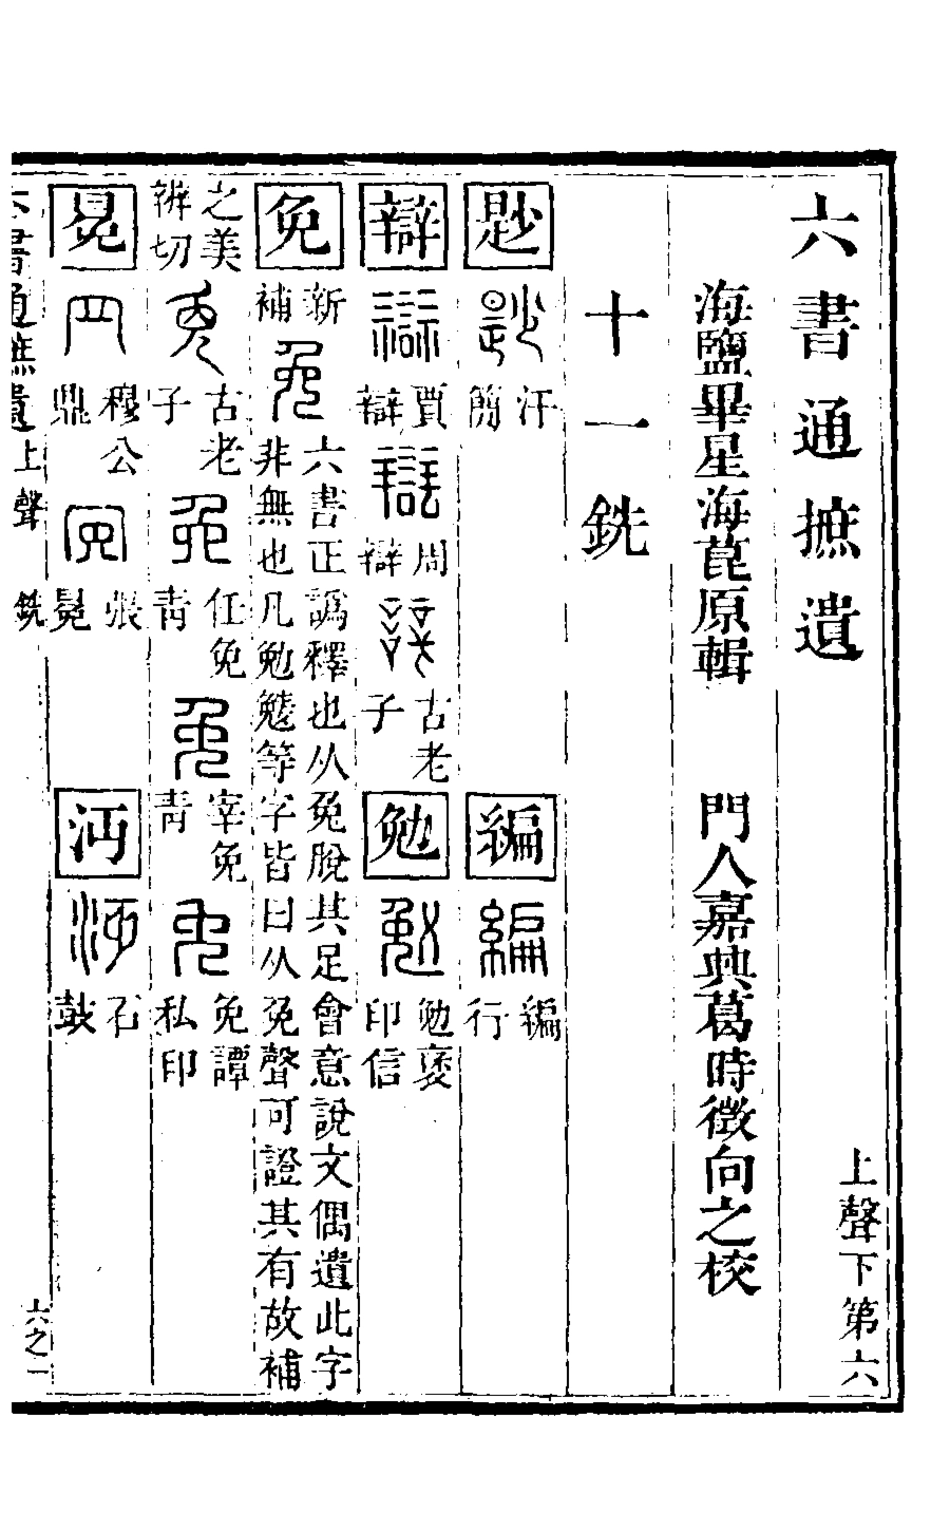 六書通摭遺
上聲下第六
海鹽畢星海崑原輯
門人嘉興葛時徵向之校
十一銑
尟
汗簡
編
編行
辯
賈辯
周辯
古老子
勉
勉褒印信
免
新補
六書正譌釋也从兔脫其足會意說文偶遺此字
非無也凡勉勉等字皆曰从免聲可證其有故補
之美
辨切
古老子
任免青
宰免青
免譚私印
冕
穆公鼎
張冕
沔
石鼓
六書通摭遺
上聲
銑
六之一